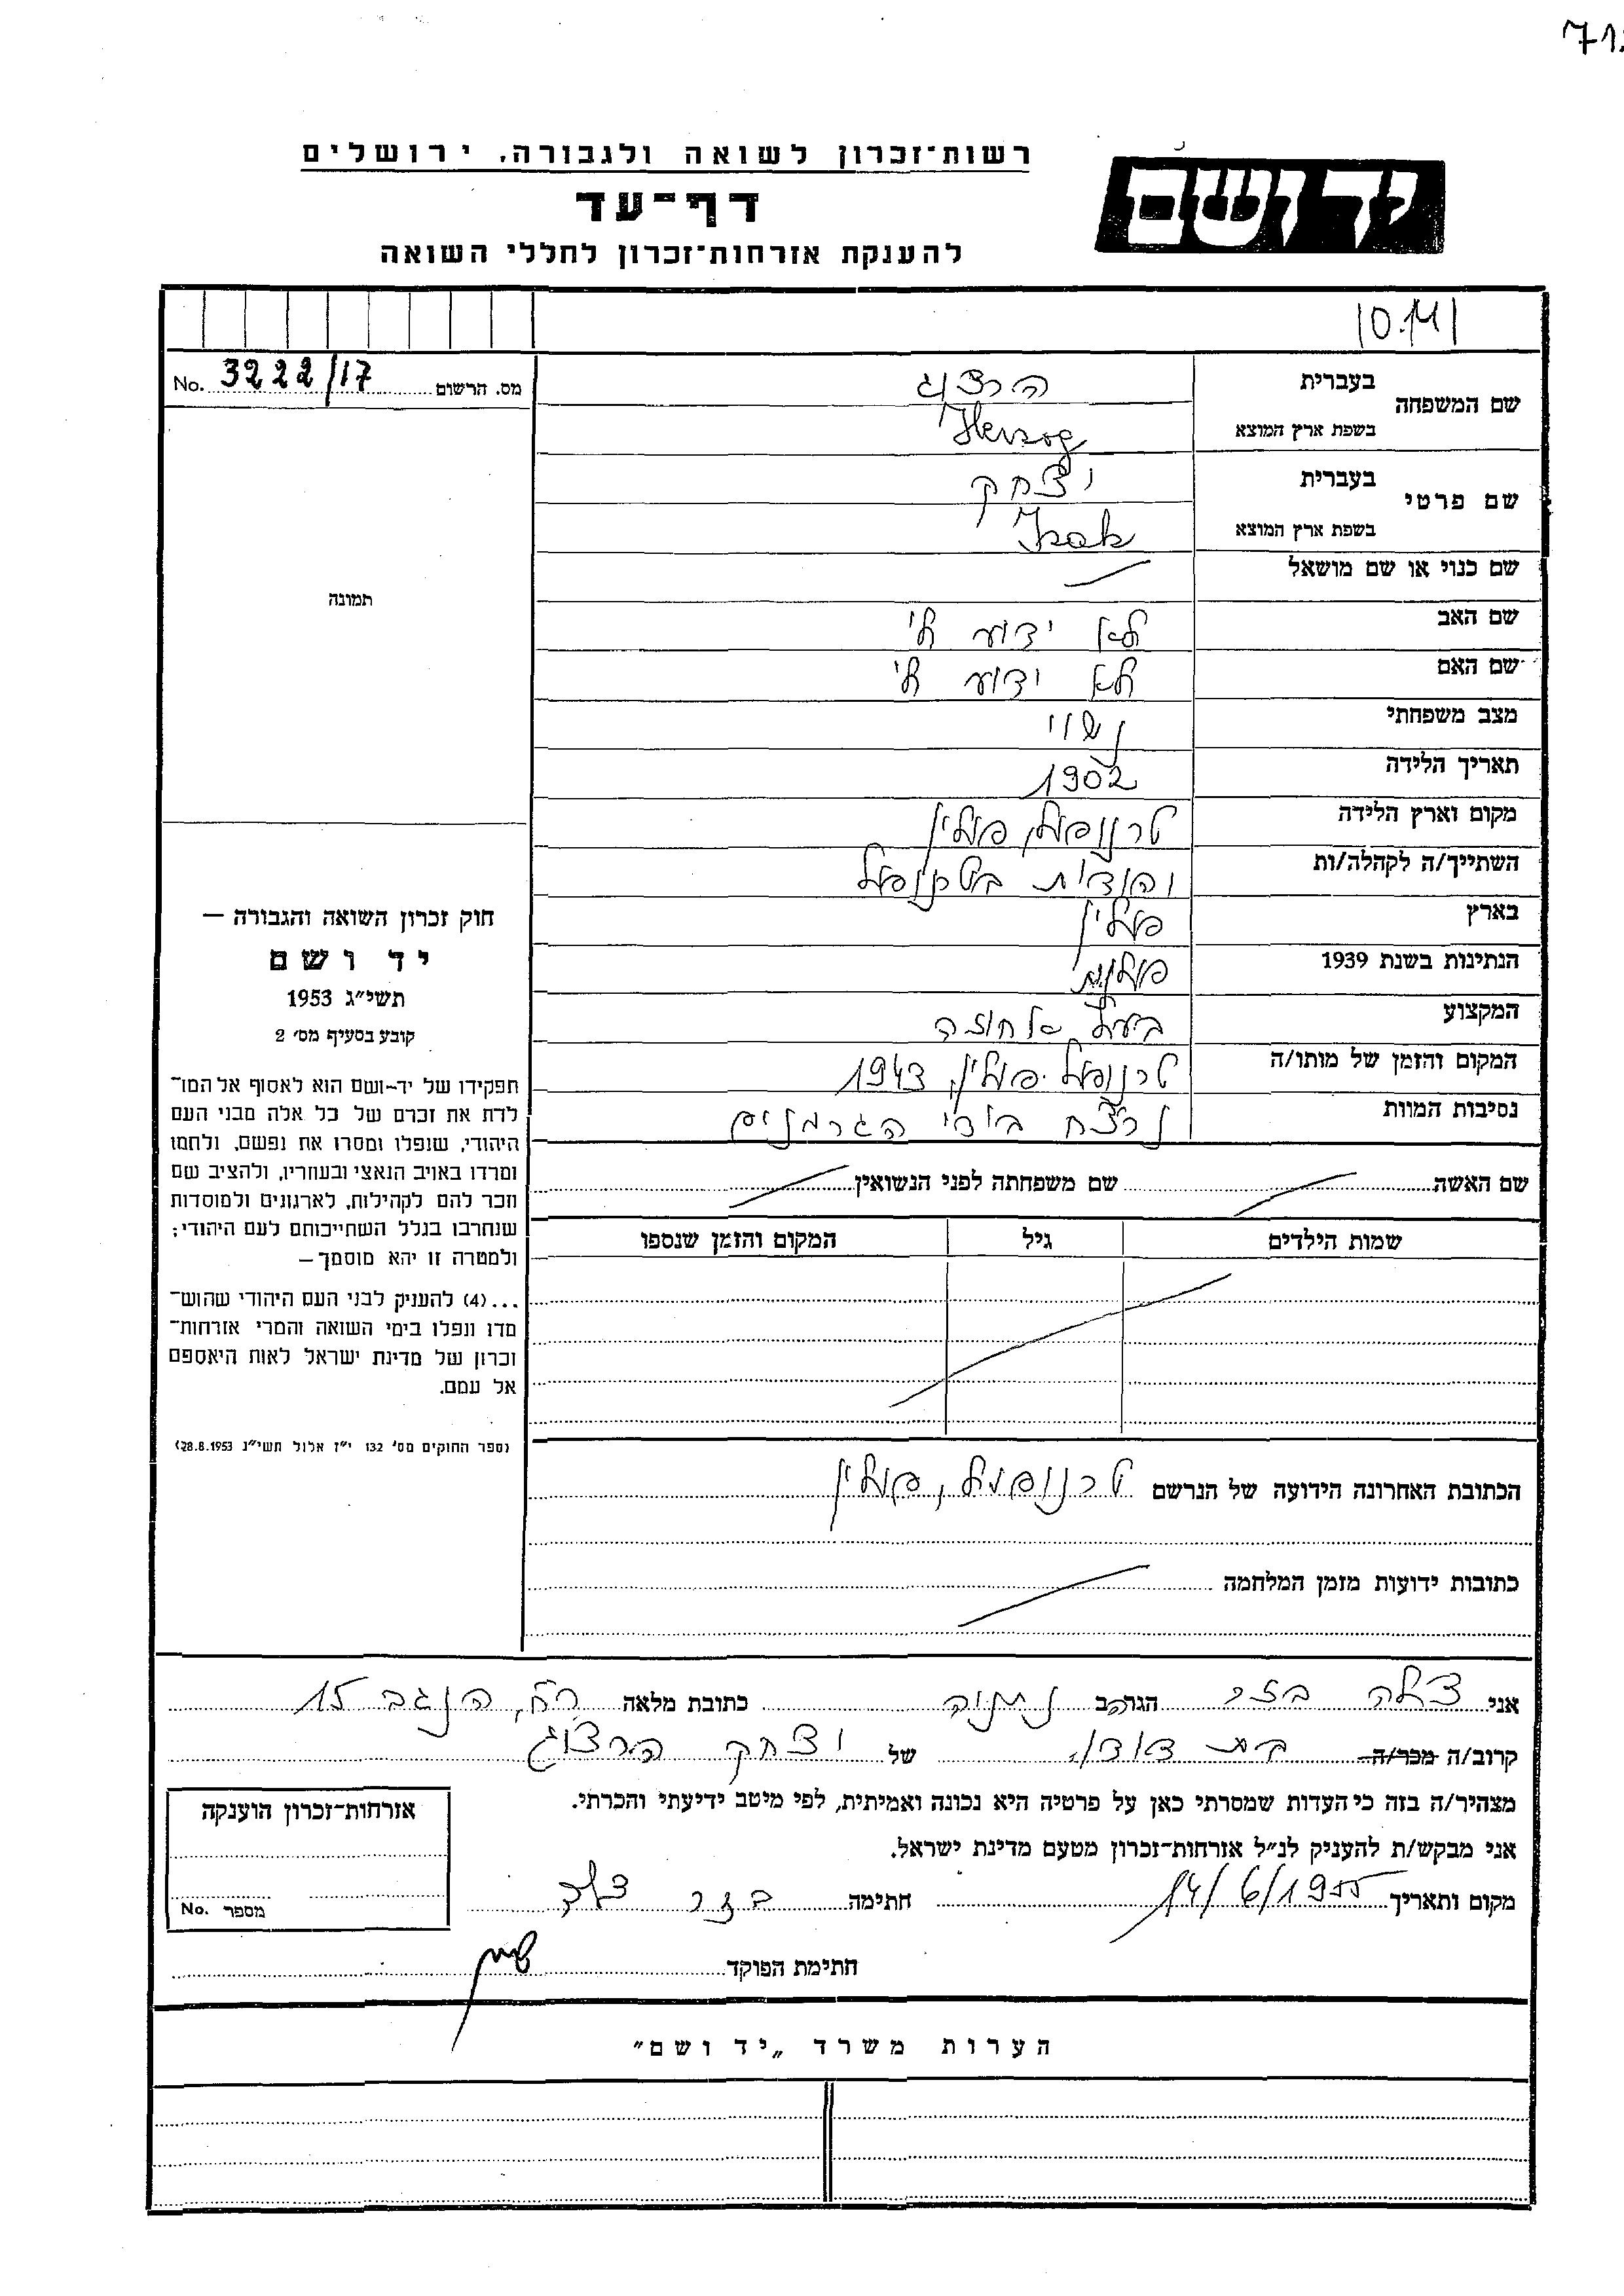 718
רשות־זכרון לשואה ולגבורה, ירושלים
דף־עד
להענקת אזרחות־זכרון לחללי השואה
יד ושם
מס. הרשום 3222/17 No.
תמונה
חוק זכרון השואה והגבורה —
יד ושם
תשי״ג 1953
קובע בסעיף מס׳ 2
תפקידו של יד־ושם הוא לאסוף אל המו־
לדת את זכרם של כל אלה מבני העם
היהודי, שנפלו ומסרו את נפשם, ולחמו
ומרדו באויב הנאצי ובעוזריו, ולהציב שם
וזכר להם לקהילות, לארגונים ולמוסדות
שנחרבו בגלל השתייכותם לעם היהודי;
ולמטרה זו יהא מוסמך —
...(4) להעניק לבני העם היהודי שהוש־
מדו ונפלו בימי השואה והמרי אזרחות־
זכרון של מדינת ישראל לאות היאספם
אל עמם.
(ספר החוקים מס׳ 132 י״ז אלול תשי״ג 28.8.1953)
שם המשפחה בעברית הרצוג
בשפת ארץ המוצא Herzog
שם פרטי בעברית יצחק
בשפת ארץ המוצא Izak
שם כנוי או שם מושאל
שם האב לא ידוע לי
שם האם לא ידוע לי
מצב משפחתי נשוי
תאריך הלידה 1902
מקום וארץ הלידה טרנופול, פולין
השתייך/ה לקהלה/ות יהודית בטרנופול
בארץ פולין
הנתינות בשנת 1939 פולנית
המקצוע בעל אחוזה
המקום והזמן של מותו/ה טרנופול פולין, 1943
נסיבות המוות נרצח בידי הגרמנים
שם האשה שם משפחתה לפני הנשואין
שמות הילדים גיל המקום והזמן שנספו
הכתובת האחרונה הידועה של הנרשם טרנופול, פולין
כתובות ידועות מזמן המלחמה
אני צלה בזר הגר/ה ב נתניה כתובת מלאה רח, הנגב 15
קרוב/ה מכר/ה בת דודו של יצחק הרצוג
מצהיר/ה בזה כי העדות שמסרתי כאן על פרטיה היא נכונה ואמיתית, לפי מיטב ידיעתי והכרתי.
אני מבקש/ת להעניק לנ״ל אזרחות־זכרון מטעם מדינת ישראל.
מקום ותאריך 14/6/1955 חתימה בזר צלה
חתימת הפוקד
אזרחות־זכרון הוענקה
מספר No.
הערות משרד „יד ושם״